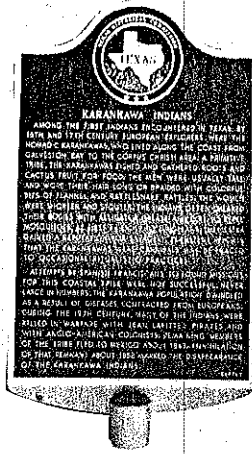 TEXAS
KARANKAWA INDIANS
AMONG THE FIRST INDIANS ENCOUNTERED IN TEXAS BY
16TH AND 17TH CENTURY EUROPEAN EXPLORERS WERE THE
NOMADIC KARANKAWAS, WHO LIVED ALONG THE COAST FROM
GALVESTON BAY TO THE CORPUS CHRISTI AREA. A PRIMITIVE
TRIBE, THE KARANKAWAS FISHED AND GATHERED ROOTS AND
CACTUS FRUIT FOR FOOD. THE MEN WERE USUALLY TALL
AND WORE THEIR HAIR LONG OR BRAIDED WITH COLORFUL
BITS OF FLANNEL AND RATTLESNAKE RATTLES. THE WOMEN
WERE SHORTER AND STOUTER. THE INDIANS OFTEN SMEARED
THEIR BODIES WITH ALLIGATOR GREASE TO REPEL
MOSQUITOES.
THAT THE KARANKAWAS
TO OCCASIONAL RITUALISTIC PRACTICES.
ATTEMPTS BY SPANISH FRANCISCANS TO FOUND MISSIONS
FOR THIS COASTAL TRIBE WERE NOT SUCCESSFUL. NEVER
LARGE IN NUMBERS, THE KARANKAWA POPULATION DWINDLED
AS A RESULT OF DISEASES CONTRACTED FROM EUROPEANS.
DURING THE 19TH CENTURY, MANY OF THE INDIANS WERE
KILLED IN WARFARE WITH JEAN LAFITTE'S PIRATES AND
WITH ANGLO-AMERICAN COLONISTS. REMAINING MEMBERS
OF THE TRIBE FLED TO MEXICO ABOUT 1843. ANNIHILATION
OF THAT REMNANT ABOUT 1858 MARKED THE DISAPPEARANCE
OF THE KARANKAWA INDIANS.